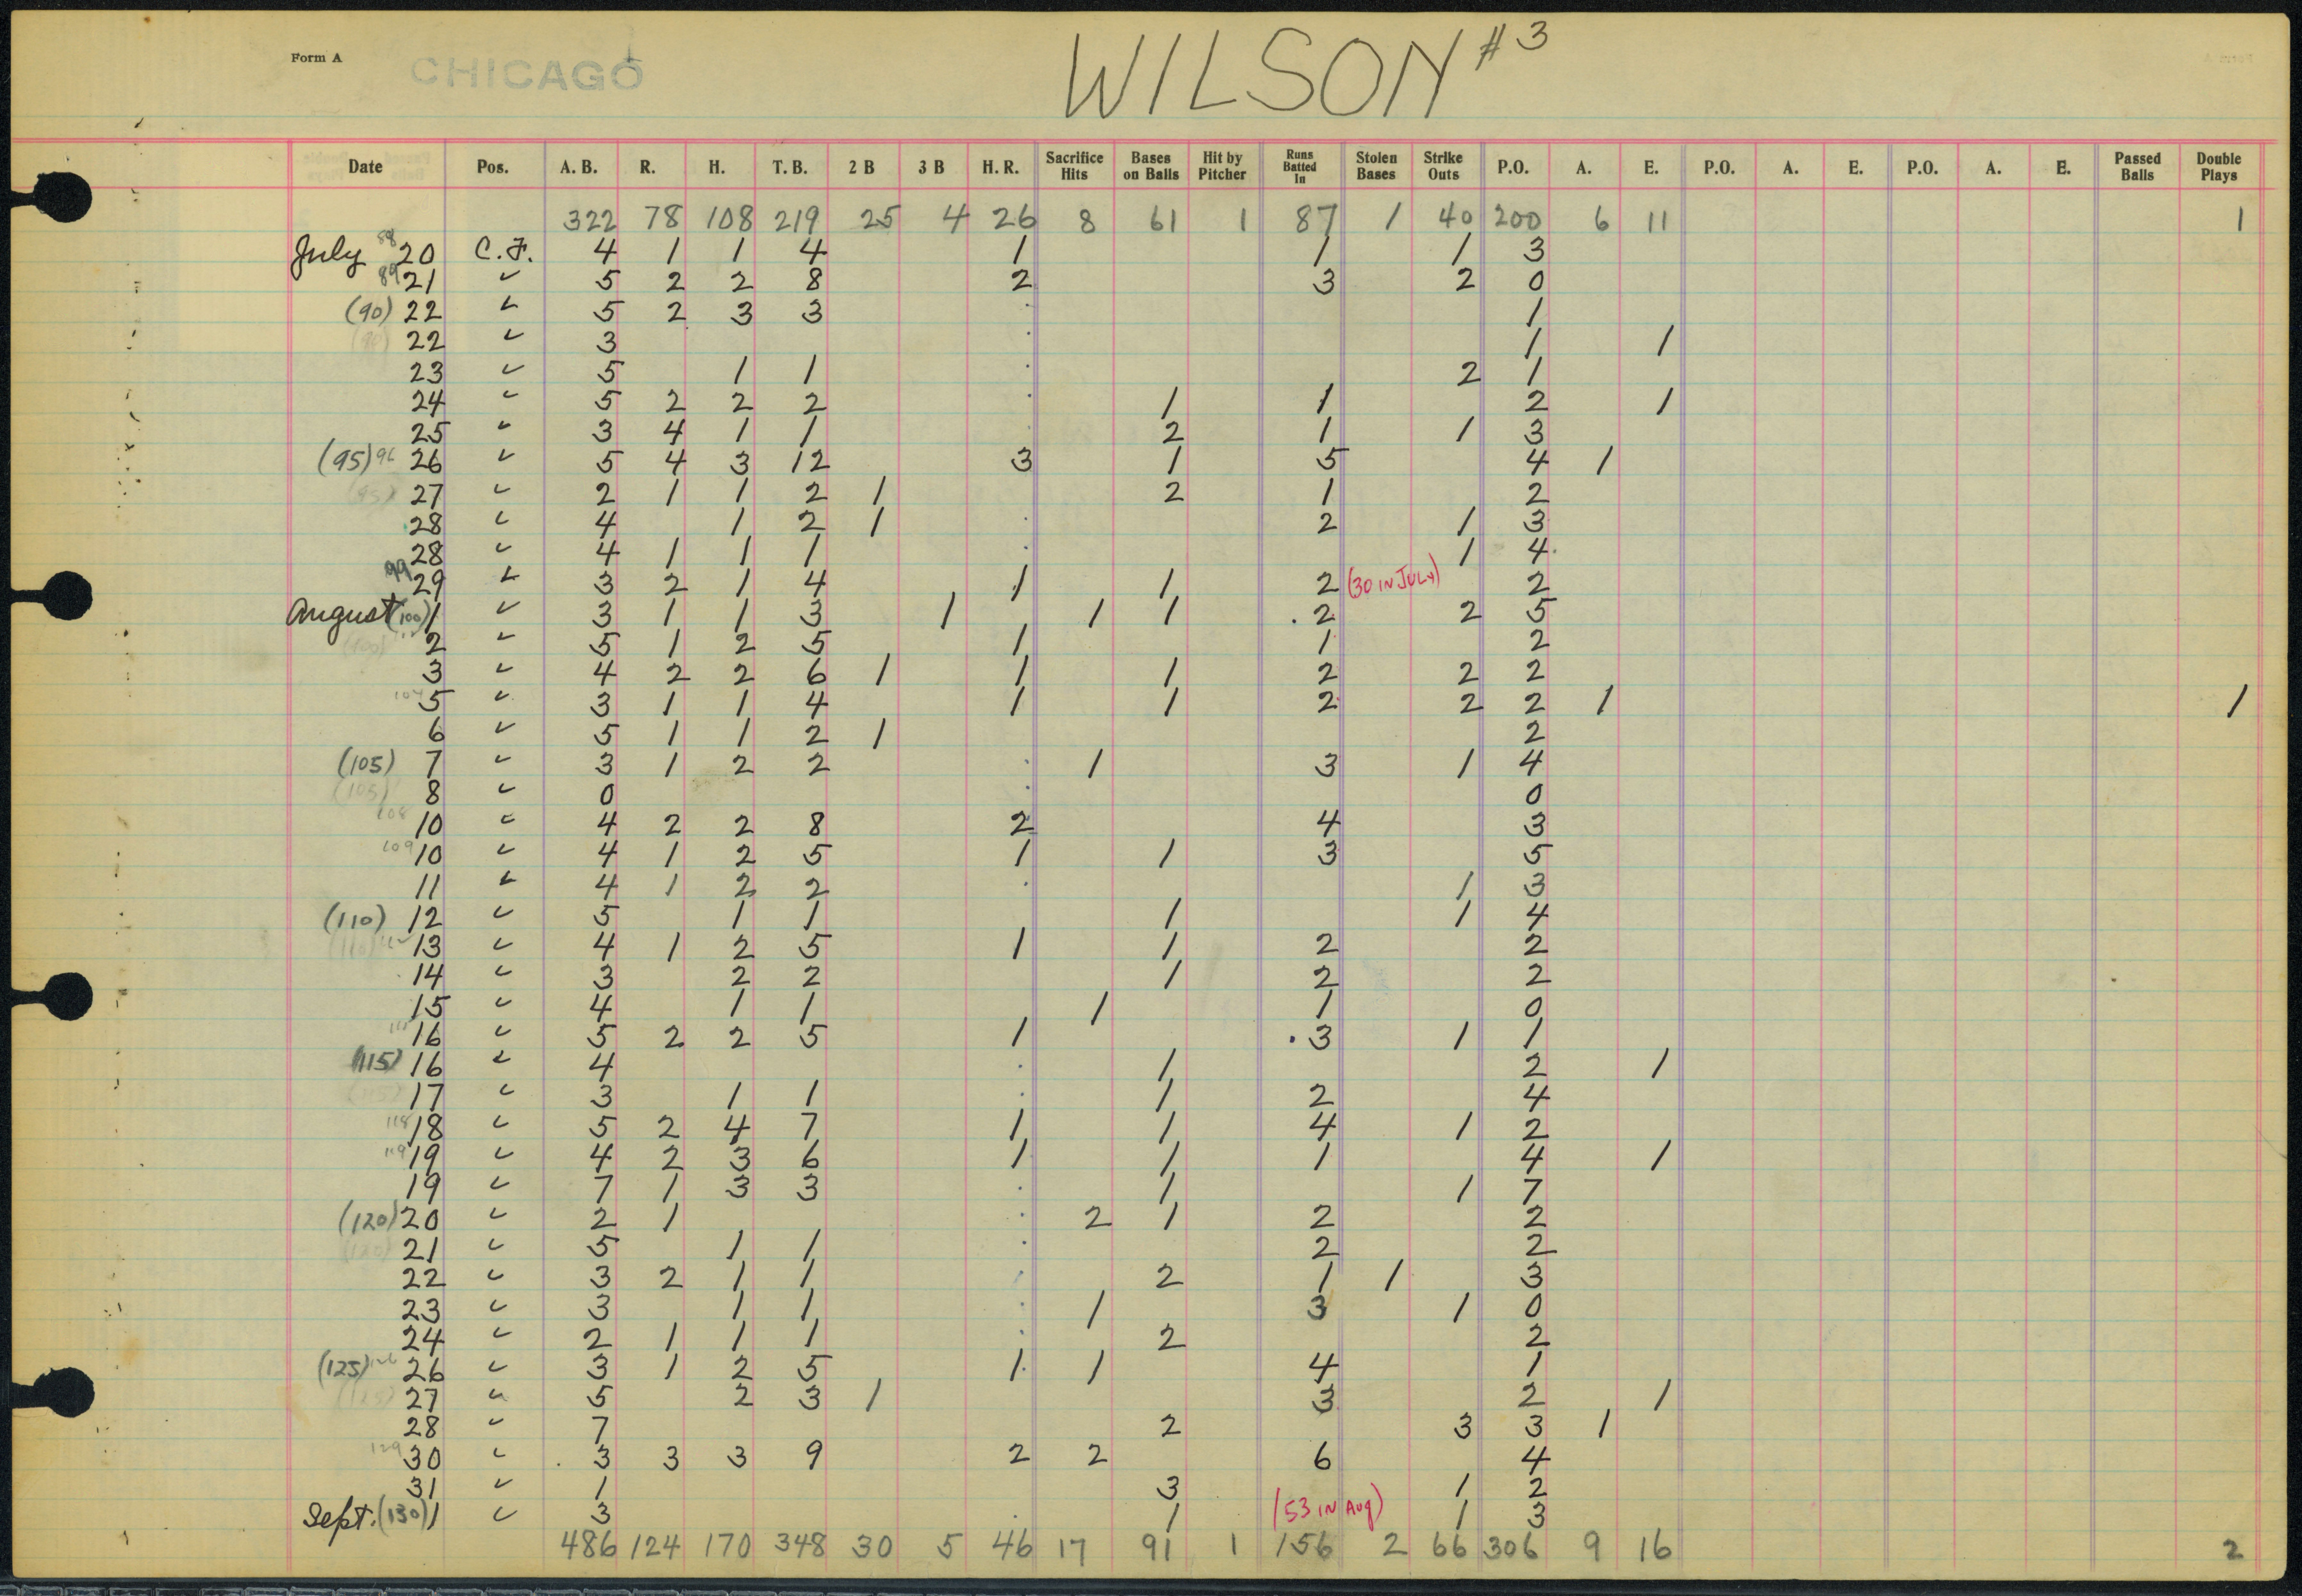 Form A CHICAGO WILSON #3
Date Pos. A. B. R. H. T. B. 2 B 3 B H. R. Sacrifice Hits Bases on Balls Hit by Pitcher Runs Batted In Stolen Bases Strike Outs P.O. A. E. P.O. A. E. P.O. A. E. Passed Balls Double Plays
322 78 108 219 25 4 26 8 61 1 87 1 40 200 6 11 1
July 88 20 C. F. 4 1 1 4 1 1 1 3
89 21 ✓ 5 2 2 8 2 3 2 0
(90) 22 ✓ 5 2 3 3 1
(90) 22 ✓ 3 1 1
23 ✓ 5 1 1 2 1
24 ✓ 5 2 2 2 1 1 2 1
25 ✓ 3 4 1 1 2 1 1 3
(95) 96 26 ✓ 5 4 3 12 3 1 5 4 1
(95) 27 ✓ 2 1 1 2 1 2 1 2
28 ✓ 4 1 2 1 2 1 3
28 ✓ 4 1 1 1 1 4
99 29 ✓ 3 2 1 4 1 1 2 (30 IN JULY) 2
August (100) 1 ✓ 3 1 1 3 1 1 1 2 2 5
(100) 2 ✓ 5 1 2 5 1 1 2
3 ✓ 4 2 2 6 1 1 1 2 2 2
104 5 ✓ 3 1 1 4 1 1 2 2 2 1 1
6 ✓ 5 1 1 2 1 2
(105) 7 ✓ 3 1 2 2 1 3 1 4
(105) 8 ✓ 0 0
108 10 ✓ 4 2 2 8 2 4 3
109 10 ✓ 4 1 2 5 1 1 3 5
11 ✓ 4 1 2 2 1 3
(110) 12 ✓ 5 1 1 1 1 4
(110) 13 ✓ 4 1 2 5 1 1 2 2
14 ✓ 3 2 2 1 2 2
15 ✓ 4 1 1 1 1 0
16 ✓ 5 2 2 5 1 3 1 1
(115) 16 ✓ 4 1 2 1
(115) 17 ✓ 3 1 1 1 2 4
118 18 ✓ 5 2 4 7 1 1 4 1 2
119 19 ✓ 4 2 3 6 1 1 1 4 1
19 ✓ 7 1 3 3 1 1 7
(120) 20 ✓ 2 1 2 1 2 2
(120) 21 ✓ 5 1 1 2 2
22 ✓ 3 2 1 1 2 1 1 3
23 ✓ 3 1 1 1 3 1 0
24 ✓ 2 1 1 1 2 2
(125) 126 26 ✓ 3 1 2 5 1 1 4 1
(125) 27 ✓ 5 2 3 1 3 2 1
28 ✓ 7 2 3 3 1
129 30 ✓ 3 3 3 9 2 2 6 4
31 ✓ 1 3 1 2
Sept. (130) 1 ✓ 3 1 (53 IN AUG) 1 3
486 124 170 348 30 5 46 17 91 1 156 2 66 306 9 16 2